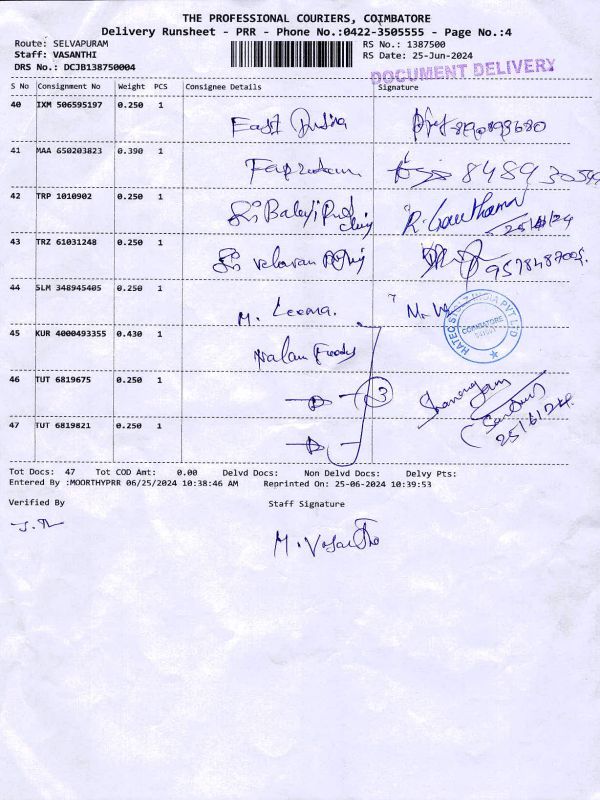 THE PROFESSIONAL COURIERS, COIMBATORE
Delivery Runsheet - PRR - Phone No.:0422-3505555 - Page No.:4
Route: SELVAPURAM
RS No.: 1387500
Staff: VASANTHI
RS Date: 25-Jun-2024
DRS No.: DCJB138750004
DOCUMENT DELIVERY
S No Consignment No Weight PCS Consignee Details Signature
40 IXM 506595197 0.250 1
East India
41 MAA 650203823 0.390 1
42 TRP 1010902 0.250 1
Sri Balaji R. Gowthaman
25/6/24
43 TRZ 61031248 0.250 1
Sri Velavan
44 SLM 348945405 0.250 1
M. Leema.
COIMBATORE
45 KUR 4000493355 0.430 1
Nalam Foods
46 TUT 6819675 0.250 1
3
47 TUT 6819821 0.250 1
25/6/24
Tot Docs: 47 Tot COD Amt: 0.00 Delvd Docs: Non Delvd Docs: Delvy Pts:
Entered By :MOORTHYPRR 06/25/2024 10:38:46 AM Reprinted On: 25-06-2024 10:39:53
Verified By Staff Signature